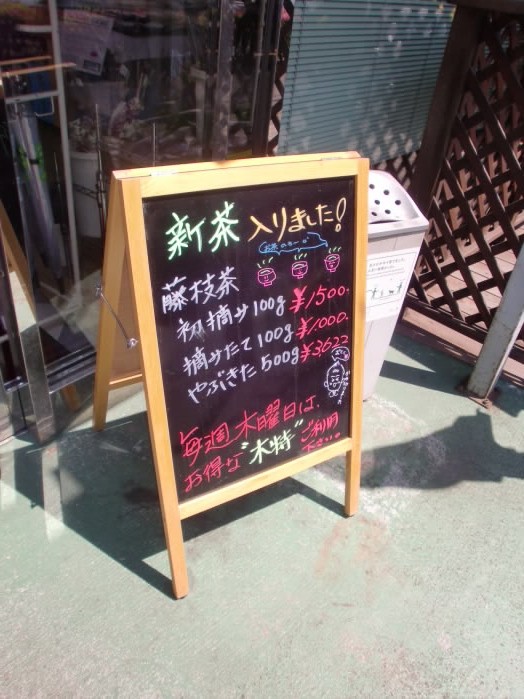 新茶 入りました!
藤枝茶
初摘み100g ¥1500.
摘みたて100g ¥1000.
やぶきた500g ¥3,622
毎週木曜日は、
お得な"木特"ご利用
下さい。